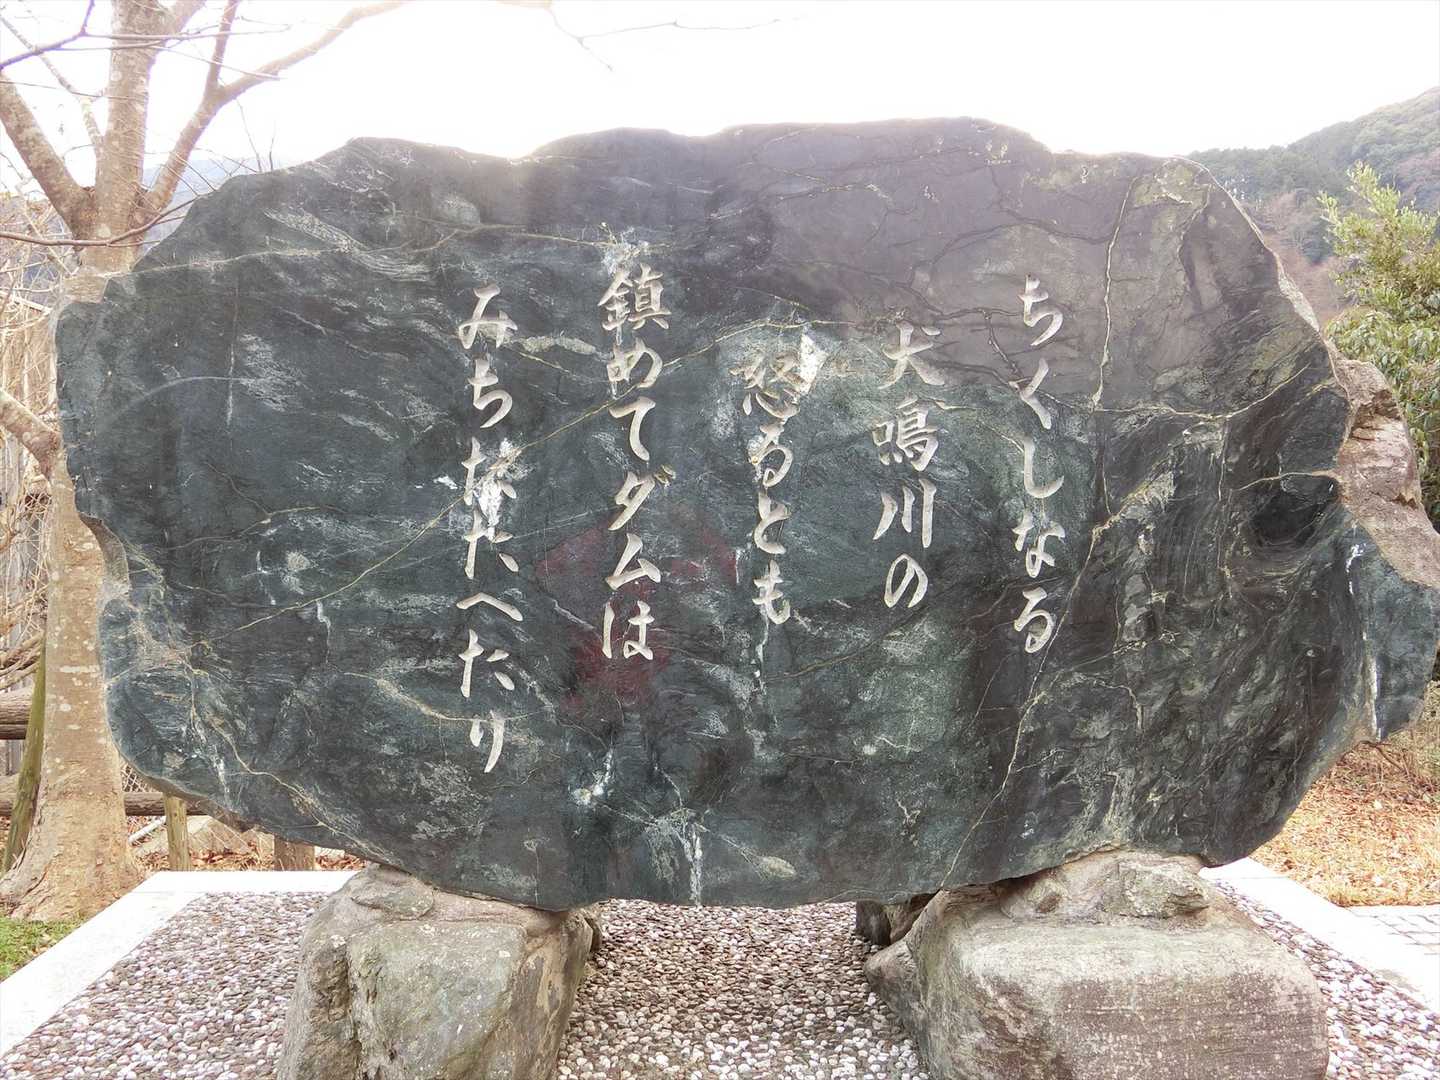 ちくしなる
犬鳴川の
怒るとも
鎮めてダムは
みちたたへたり